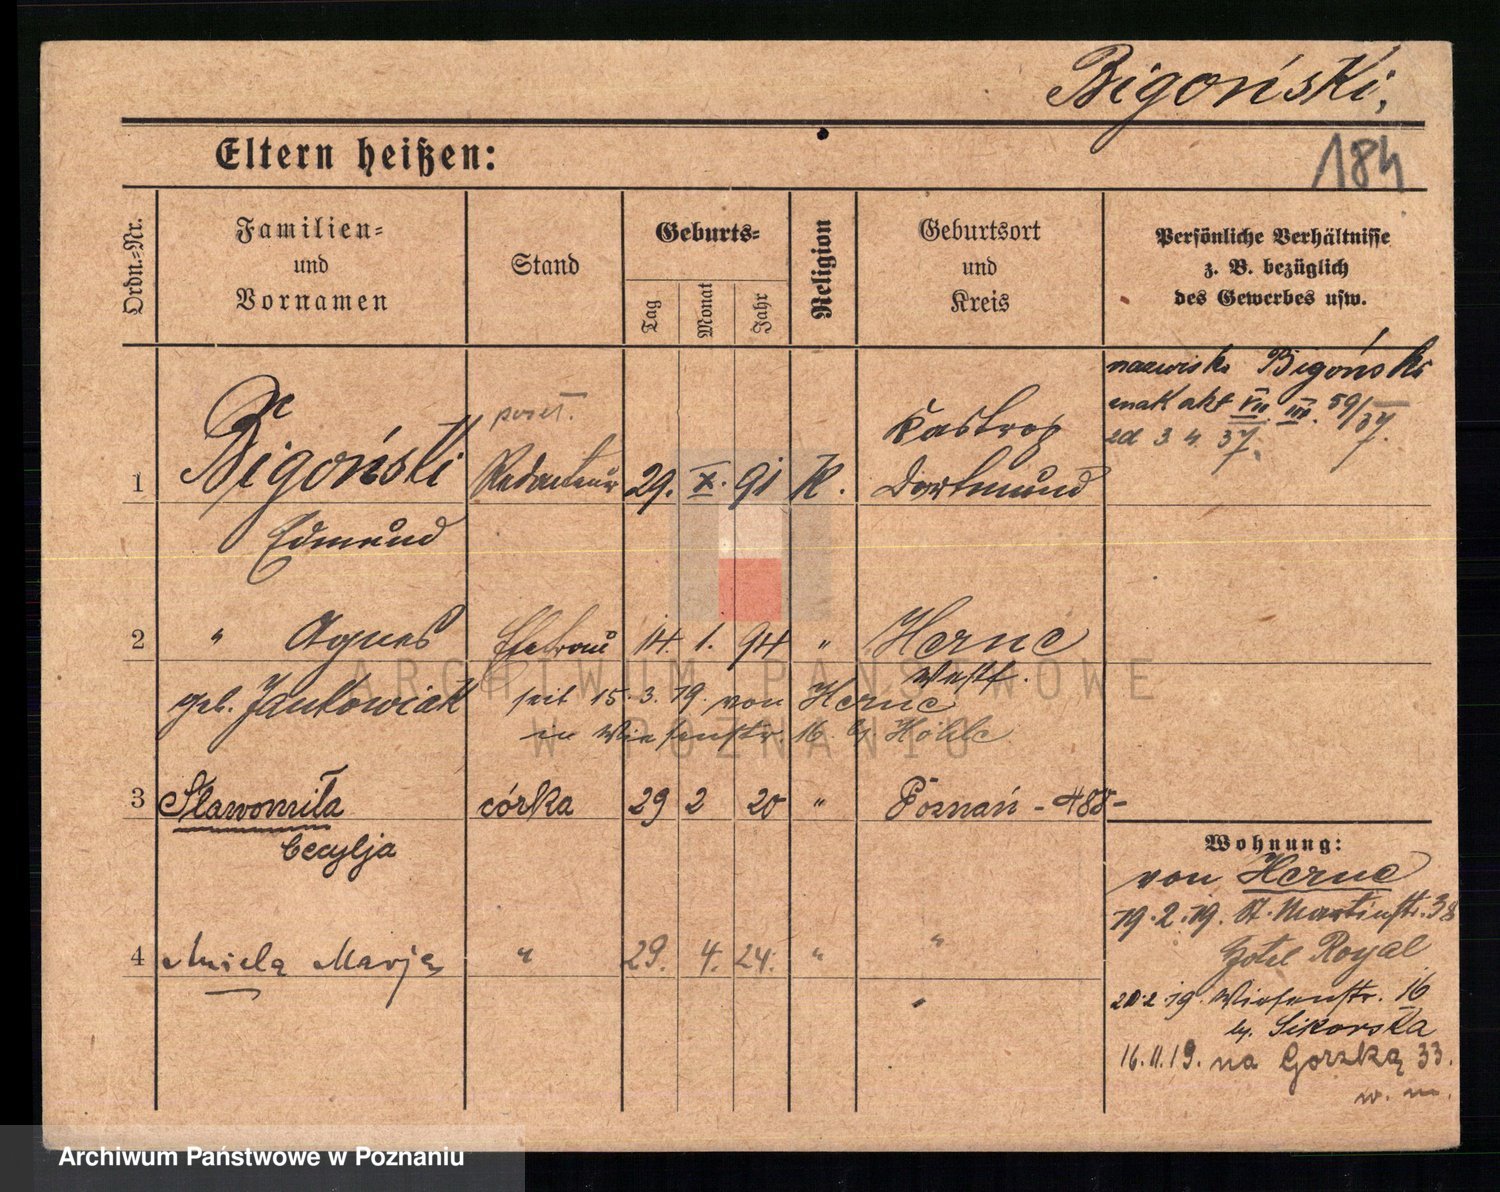 Bigoński,
184
Eltern heißen:
Ordn.-Nr.
Familien-
und
Vornamen
Stand
Geburts-
Tag
Monat
Jahr
Religion
Geburtsort
und
Kreis
Persönliche Verhältnisse
z. B. bezüglich
des Gewerbes usw.
nazwisko Bigoński
znak akt VII. III. 59/37.
zd 3 4 37.
1 Bigoński Redacteur 29. X. 91 K. Kastrop
Dortmund
Edmund
2 " Agnes Ehefrau 14. 1. 94 " Herne
Westf.
geb. Jankowiak seit 15. 3. 19. von Herne
in Wiesenstr 16. b/ Höhle
3 Sławomiła córka 29 2 20 " Poznań - 488 -
Cecylja
4 Aniela Marja " 29. 4. 24. " "
Wohnung:
von Herne
19. 2. 19. St. Martinstr. 38
Hotel Royal
20 2 19. Wiesenstr. 16
b/. Sikorska
16. 11. 19. na Gorzką 33.
w. m.
ARCHIWUM PAŃSTWOWE
W POZNANIU
Archiwum Państwowe w Poznaniu